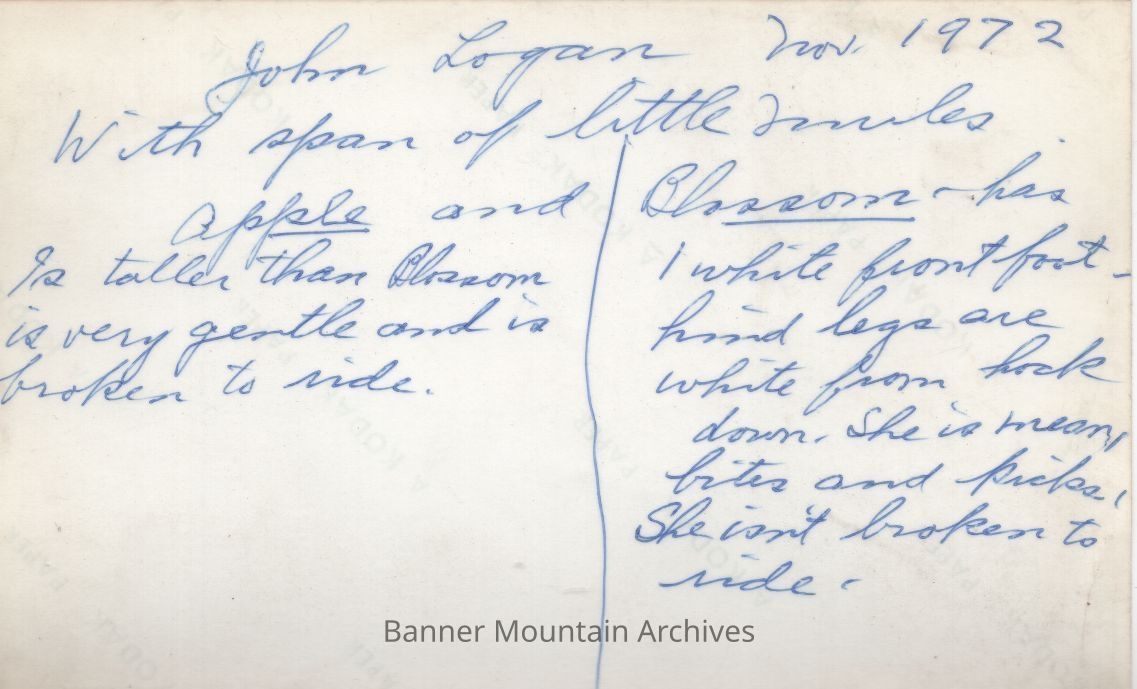 John Logan Nov. 1972
With span of little mules.
Apple and
Is taller than Blossom
is very gentle and is
broken to ride.
Blossom - has
1 white front foot -
hind legs are
white from hock
down. She is mean,
bites and kicks,
She isn't broken to
ride.
Banner Mountain Archives